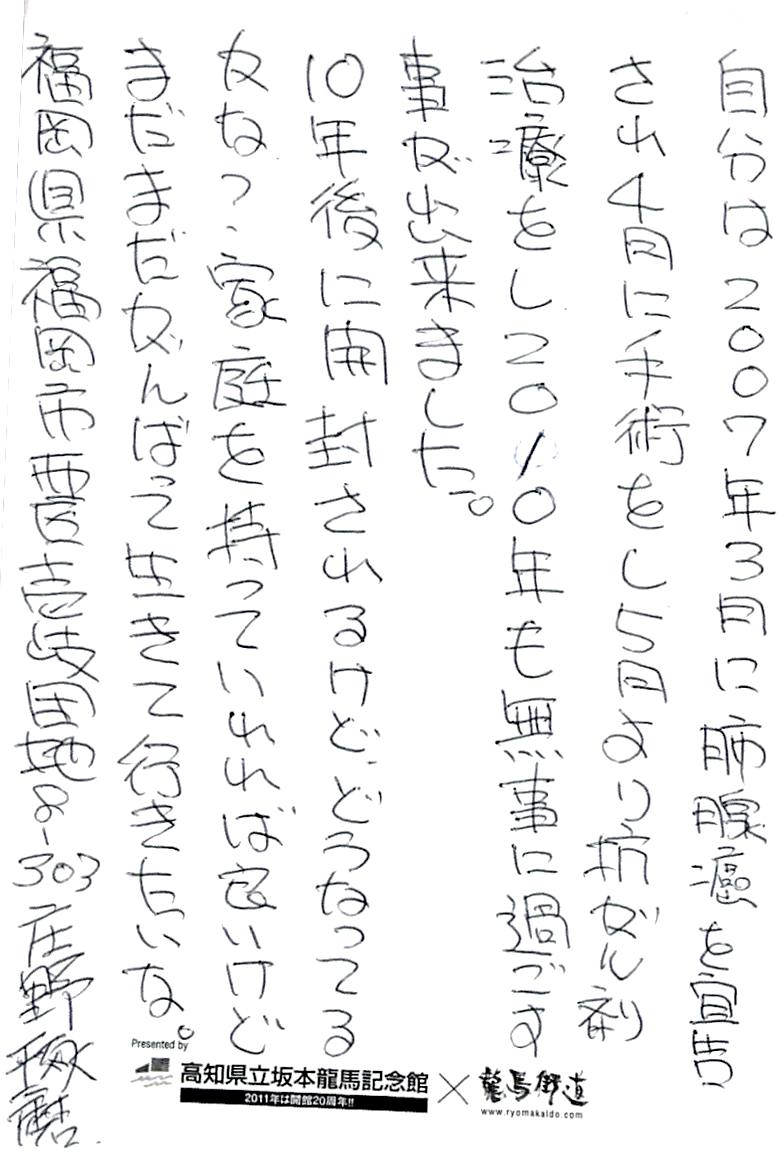 自分は2007年3月に肺腺癌を宣告
され4月に手術をし5月より抗がん剤
治療をし2010年も無事に過ごす
事が出来ました。
10年後に開封されるけど、どうなってる
かな？、家庭を持っていれれば良いけど
まだまだがんばって生きて行きたいな。
福岡県福岡市西区壱岐団地8-303 庄野琢磨.
Presented by
高知県立坂本龍馬記念館×龍馬街道
2011年は開館20周年!!
www.ryomakaido.com